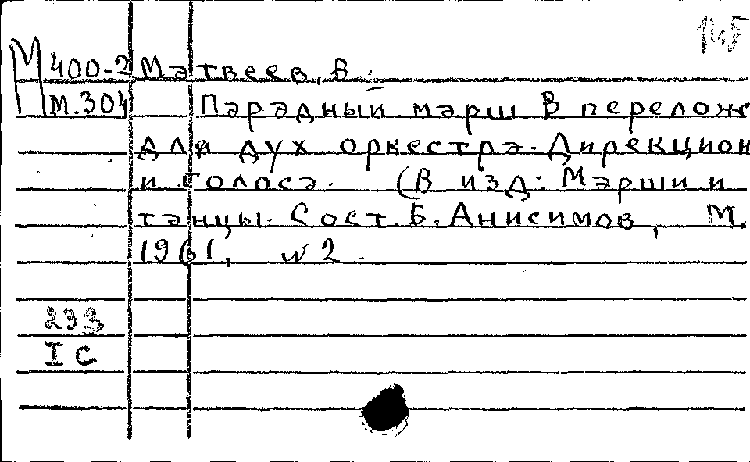 М 400-2 Матвеев, В.
М.304 Парадный марш в перелож
для дух оркестра. Дирекцион
и голоса. (В изд: Марши и
танцы. Сост. Б. Анисимов, М.
1961, № 2
293
I С